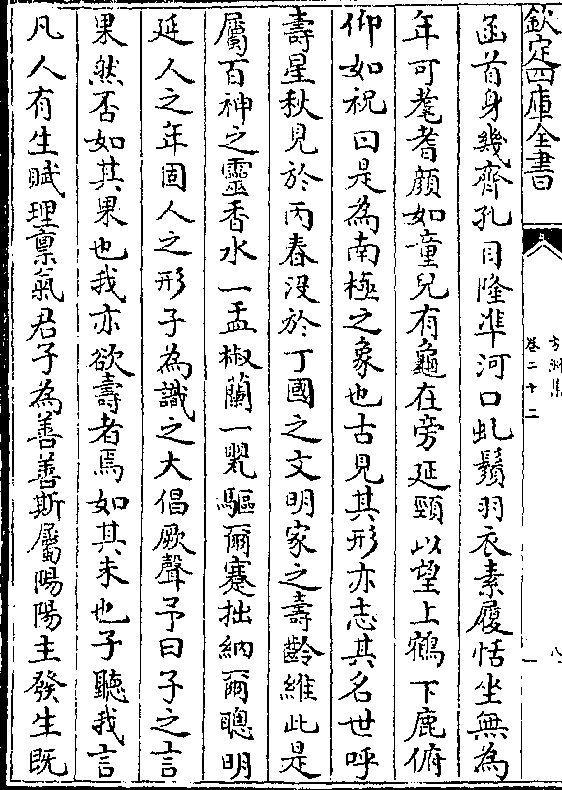 欽定四庫全書
方洲集
卷二十二
八
函首身幾齊孔目隆準河口虬鬚羽衣素履恬坐無為
年可耄耆顔如童兒有龜在旁延頸以望上鶴下鹿俯
仰如祝曰是為南極之象也古見其形亦志其名世呼
壽星秋見於丙春沒於丁國之文明家之壽齡維此是
屬百神之靈香水一盂椒蘭一斝驅爾蹇拙納爾聰明
延人之年固人之形子為識之大倡厥聲予曰子之言
果然否如其果也我亦欲壽者焉如其未也子聽我言
凡人有生賦理禀氣君子為善善斯屬陽陽主發生既